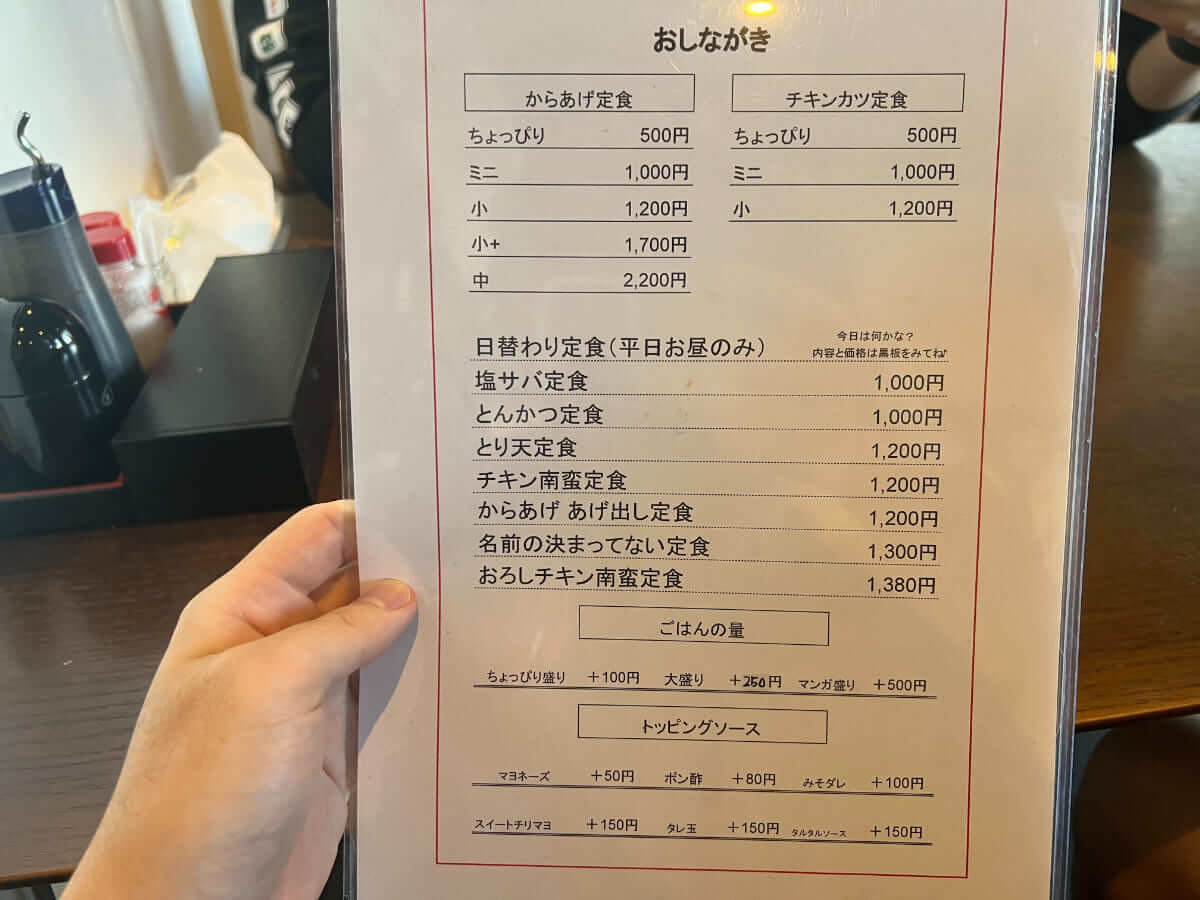 おしながき
からあげ定食
ちょっぴり 500円
ミニ 1,000円
小 1,200円
小+ 1,700円
中 2,200円
チキンカツ定食
ちょっぴり 500円
ミニ 1,000円
小 1,200円
日替わり定食(平日お昼のみ) 今日は何かな?
内容と価格は黒板をみてね♪
塩サバ定食 1,000円
とんかつ定食 1,000円
とり天定食 1,200円
チキン南蛮定食 1,200円
からあげ あげ出し定食 1,200円
名前の決まってない定食 1,300円
おろしチキン南蛮定食 1,380円
ごはんの量
ちょっぴり盛り +100円 大盛り +250円 マンガ盛り +500円
トッピングソース
マヨネーズ +50円 ポン酢 +80円 みそダレ +100円
スイートチリマヨ +150円 タレ玉 +150円 タルタルソース +150円